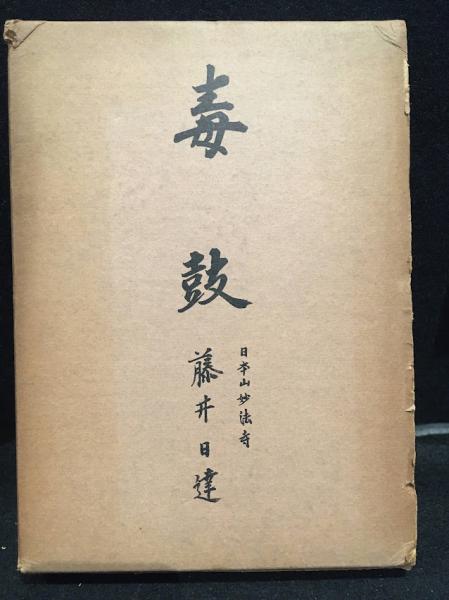 毒鼓
日本山妙法寺
藤井日達